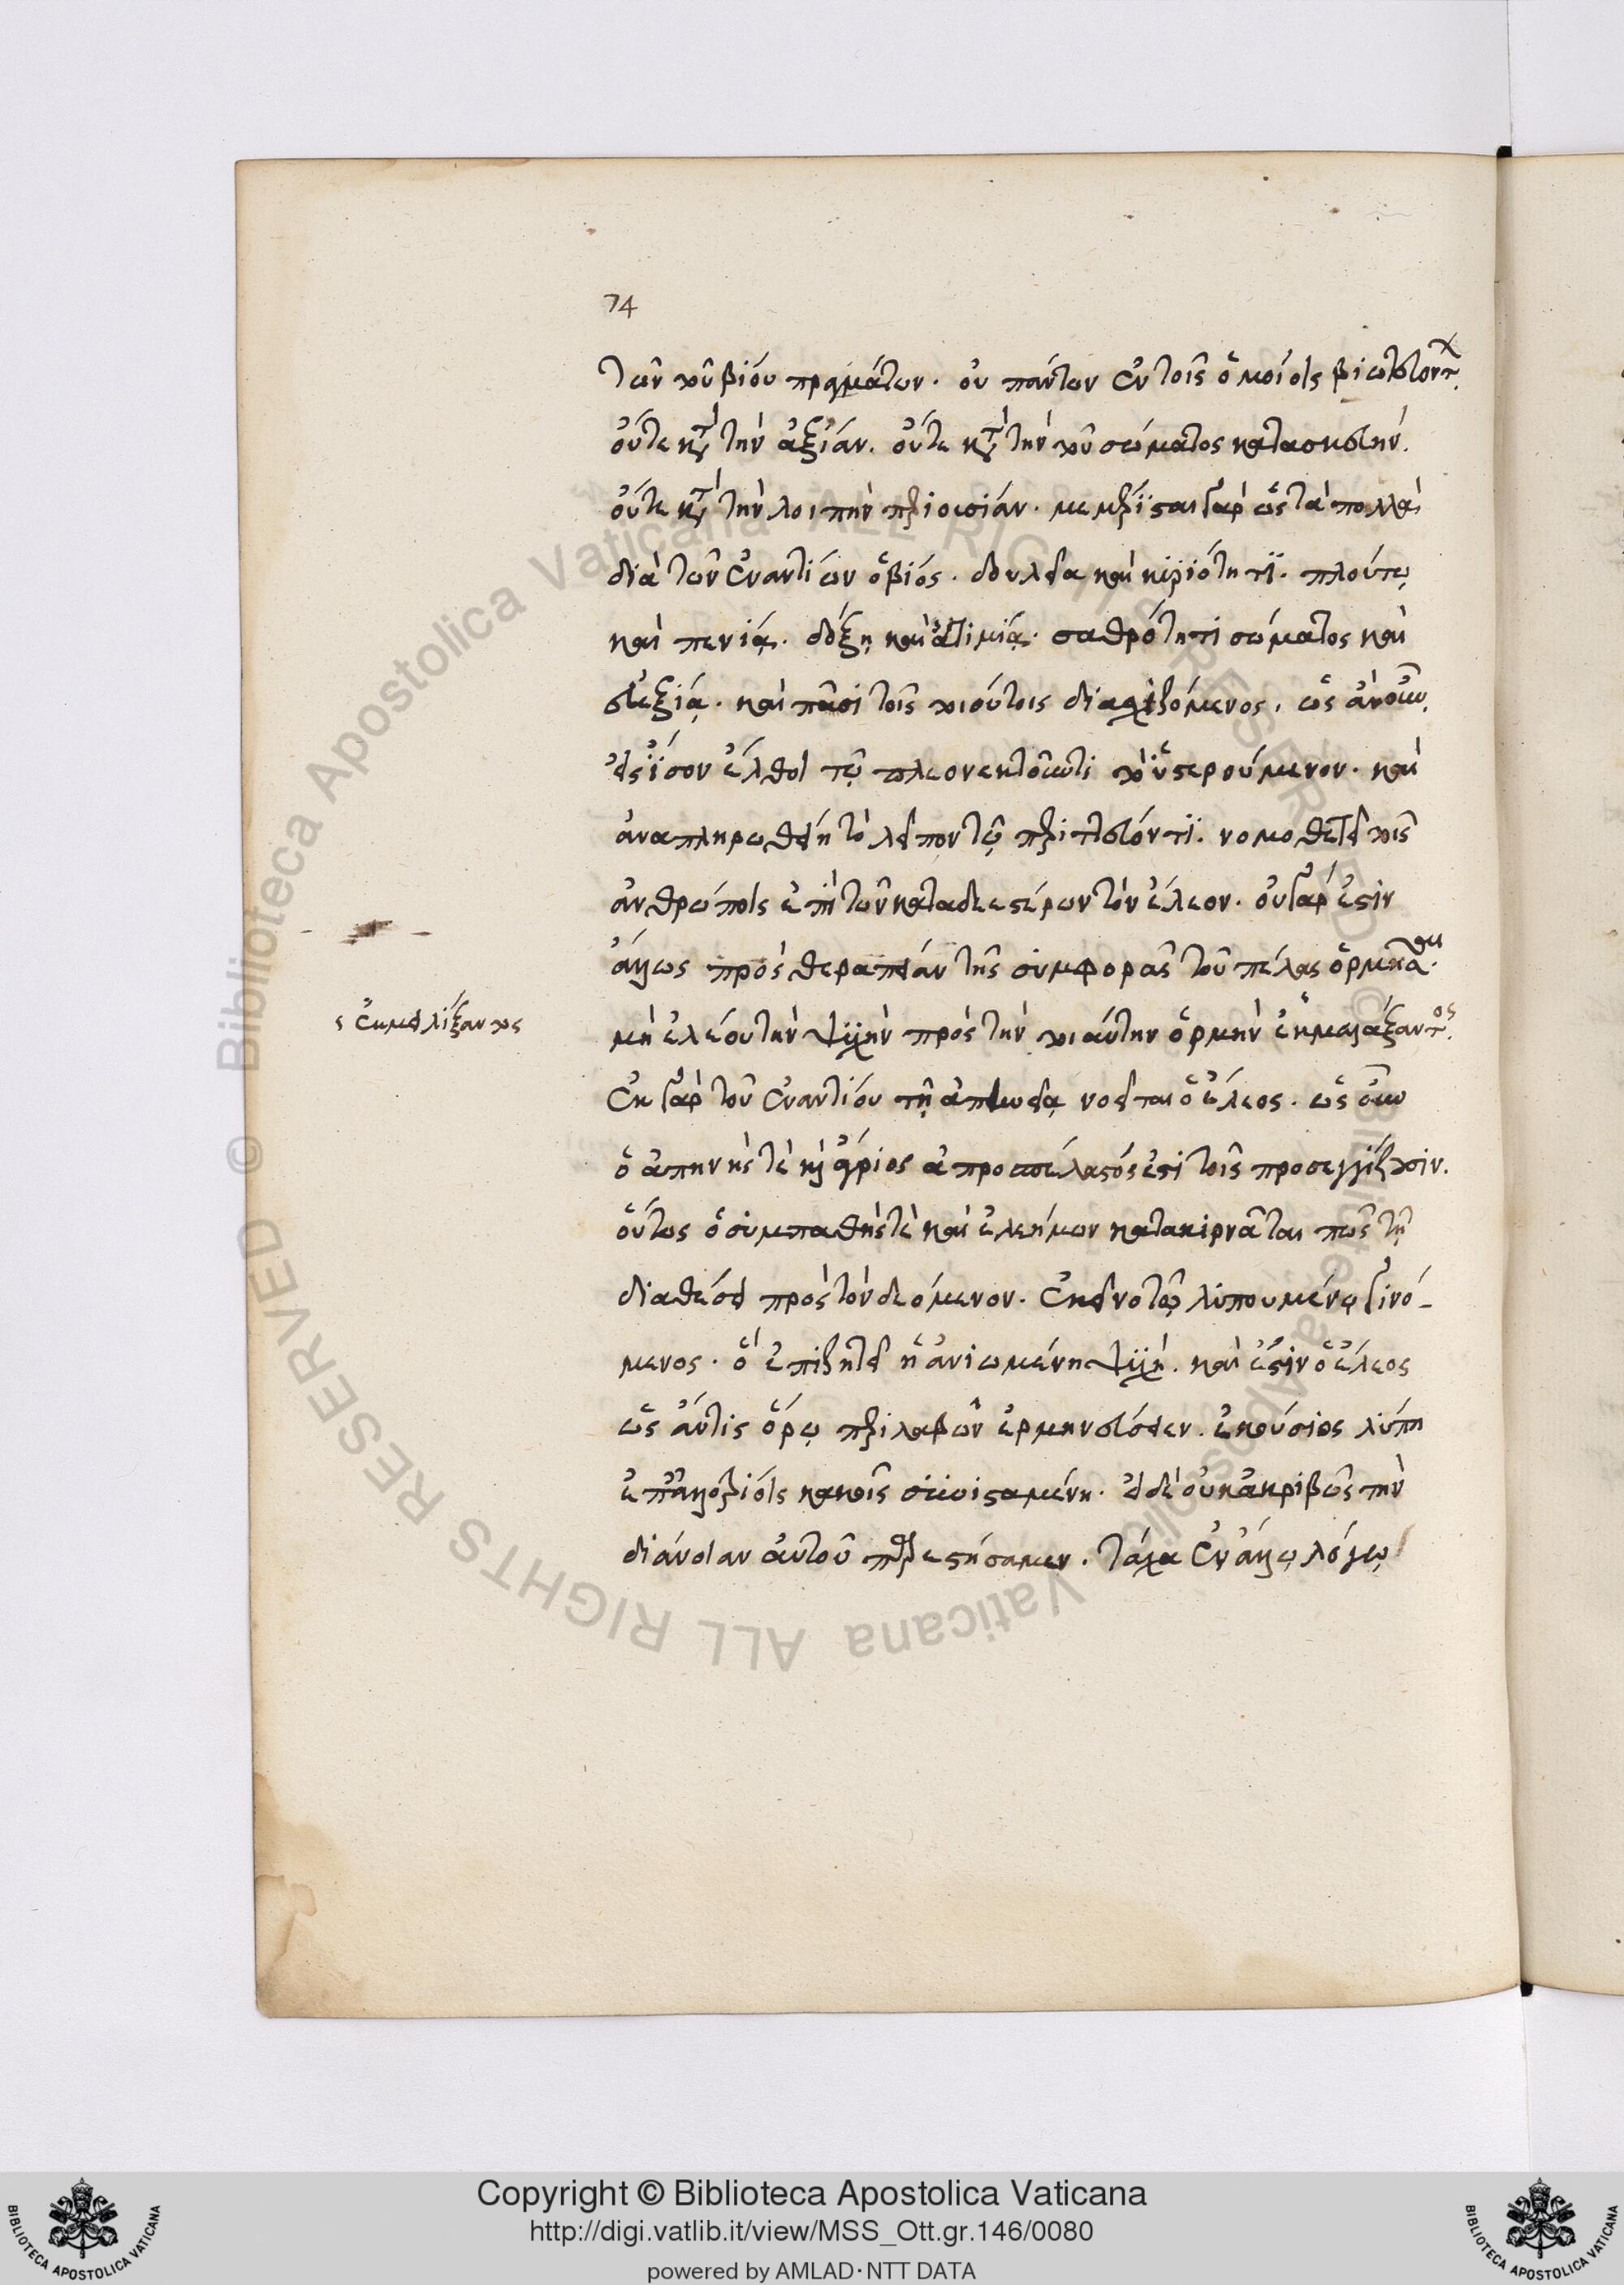 74
τῶν τοῦ βίου πραγμάτων. οὐ πάντων ἐν τοῖς ὁμοίοις βιοτευόντων
οὔτε κατὰ τὴν ἀξίαν. οὔτε κατὰ τὴν τοῦ σώματος κατασκευήν.
οὔτε κατὰ τὴν λοιπὴν περιουσίαν. μεμέρισται γὰρ ὡς τὰ πολλὰ
διὰ τῶν ἐναντίων ὁ βίος. δουλεία καὶ κυριότητι. πλούτῳ
καὶ πενίᾳ. δόξῃ καὶ ἀτιμίᾳ. σαθρότητι σώματος καὶ
εὐεξίᾳ. καὶ πᾶσι τοῖς τοιούτοις διασχιζόμενος. ὡς ἂν οὖν
εἰς ἴσον ἔλθοι τῷ πλεονεκτοῦντι τὸ ὑστερούμενον. καὶ
ἀναπληρωθείη τὸ λεῖπον τῷ περιττεύοντι. νομοθετεῖ τοῖς
ἀνθρώποις ἐπὶ τῶν καταδεεστέρων τὸν ἔλεον. οὐ γὰρ ἔστιν
ἄλλως πρὸς θεραπείαν τῆς συμφορᾶς τοῦ πέλας ὁρμηθῆναι.
μὴ ἐλέου τὴν ψυχὴν πρὸς τὴν τοιαύτην ὁρμὴν ἐκμαλάξαντος.
ς ἐκμειλίξαντος
ἐκ γὰρ τοῦ ἐναντίου τῇ ἀπηνείᾳ νοεῖται ὁ ἔλεος. ὡς οὖν
ὁ ἀπηνής τε καὶ ἄγριος ἀπροσπέλαστός ἐστι τοῖς προσεγγίζουσιν.
οὕτως ὁ συμπαθής τε καὶ ἐλεήμων κατακιρνᾶται πως τῇ
διαθέσει πρὸς τὸν δεόμενον. ἐκεῖνο τῷ λυπουμένῳ γινό-
μενος. ὃ ἐπιζητεῖ ἡ ἀνιωμένη ψυχή. καὶ ἔστιν ὁ ἔλεος
ὡς ἄν τις ὅρῳ περιλαβὼν ἑρμηνεύσειεν. ἑκούσιος λύπη
ἐπ' ἀλλοτρίοις κακοῖς συνισταμένη. εἰ δὲ οὐκ ἀκριβῶς τὴν
διάνοιαν αὐτοῦ παρεστήσαμεν. τάχα ἐν ἄλλῳ λόγῳ
Copyright © Biblioteca Apostolica Vaticana
http://digi.vatlib.it/view/MSS_Ott.gr.146/0080
powered by AMLAD·NTT DATA
BIBLIOTECA APOSTOLICA VATICANA
BIBLIOTECA APOSTOLICA VATICANA
© Biblioteca Apostolica Vaticana ALL RIGHTS RESERVED
© Biblioteca Apostolica Vaticana ALL RIGHTS RESERVED